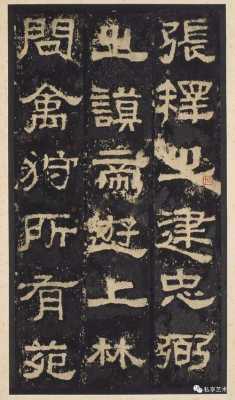 張釋之建忠弼
之謨帝遊上林
問禽狩所有苑
私享艺术